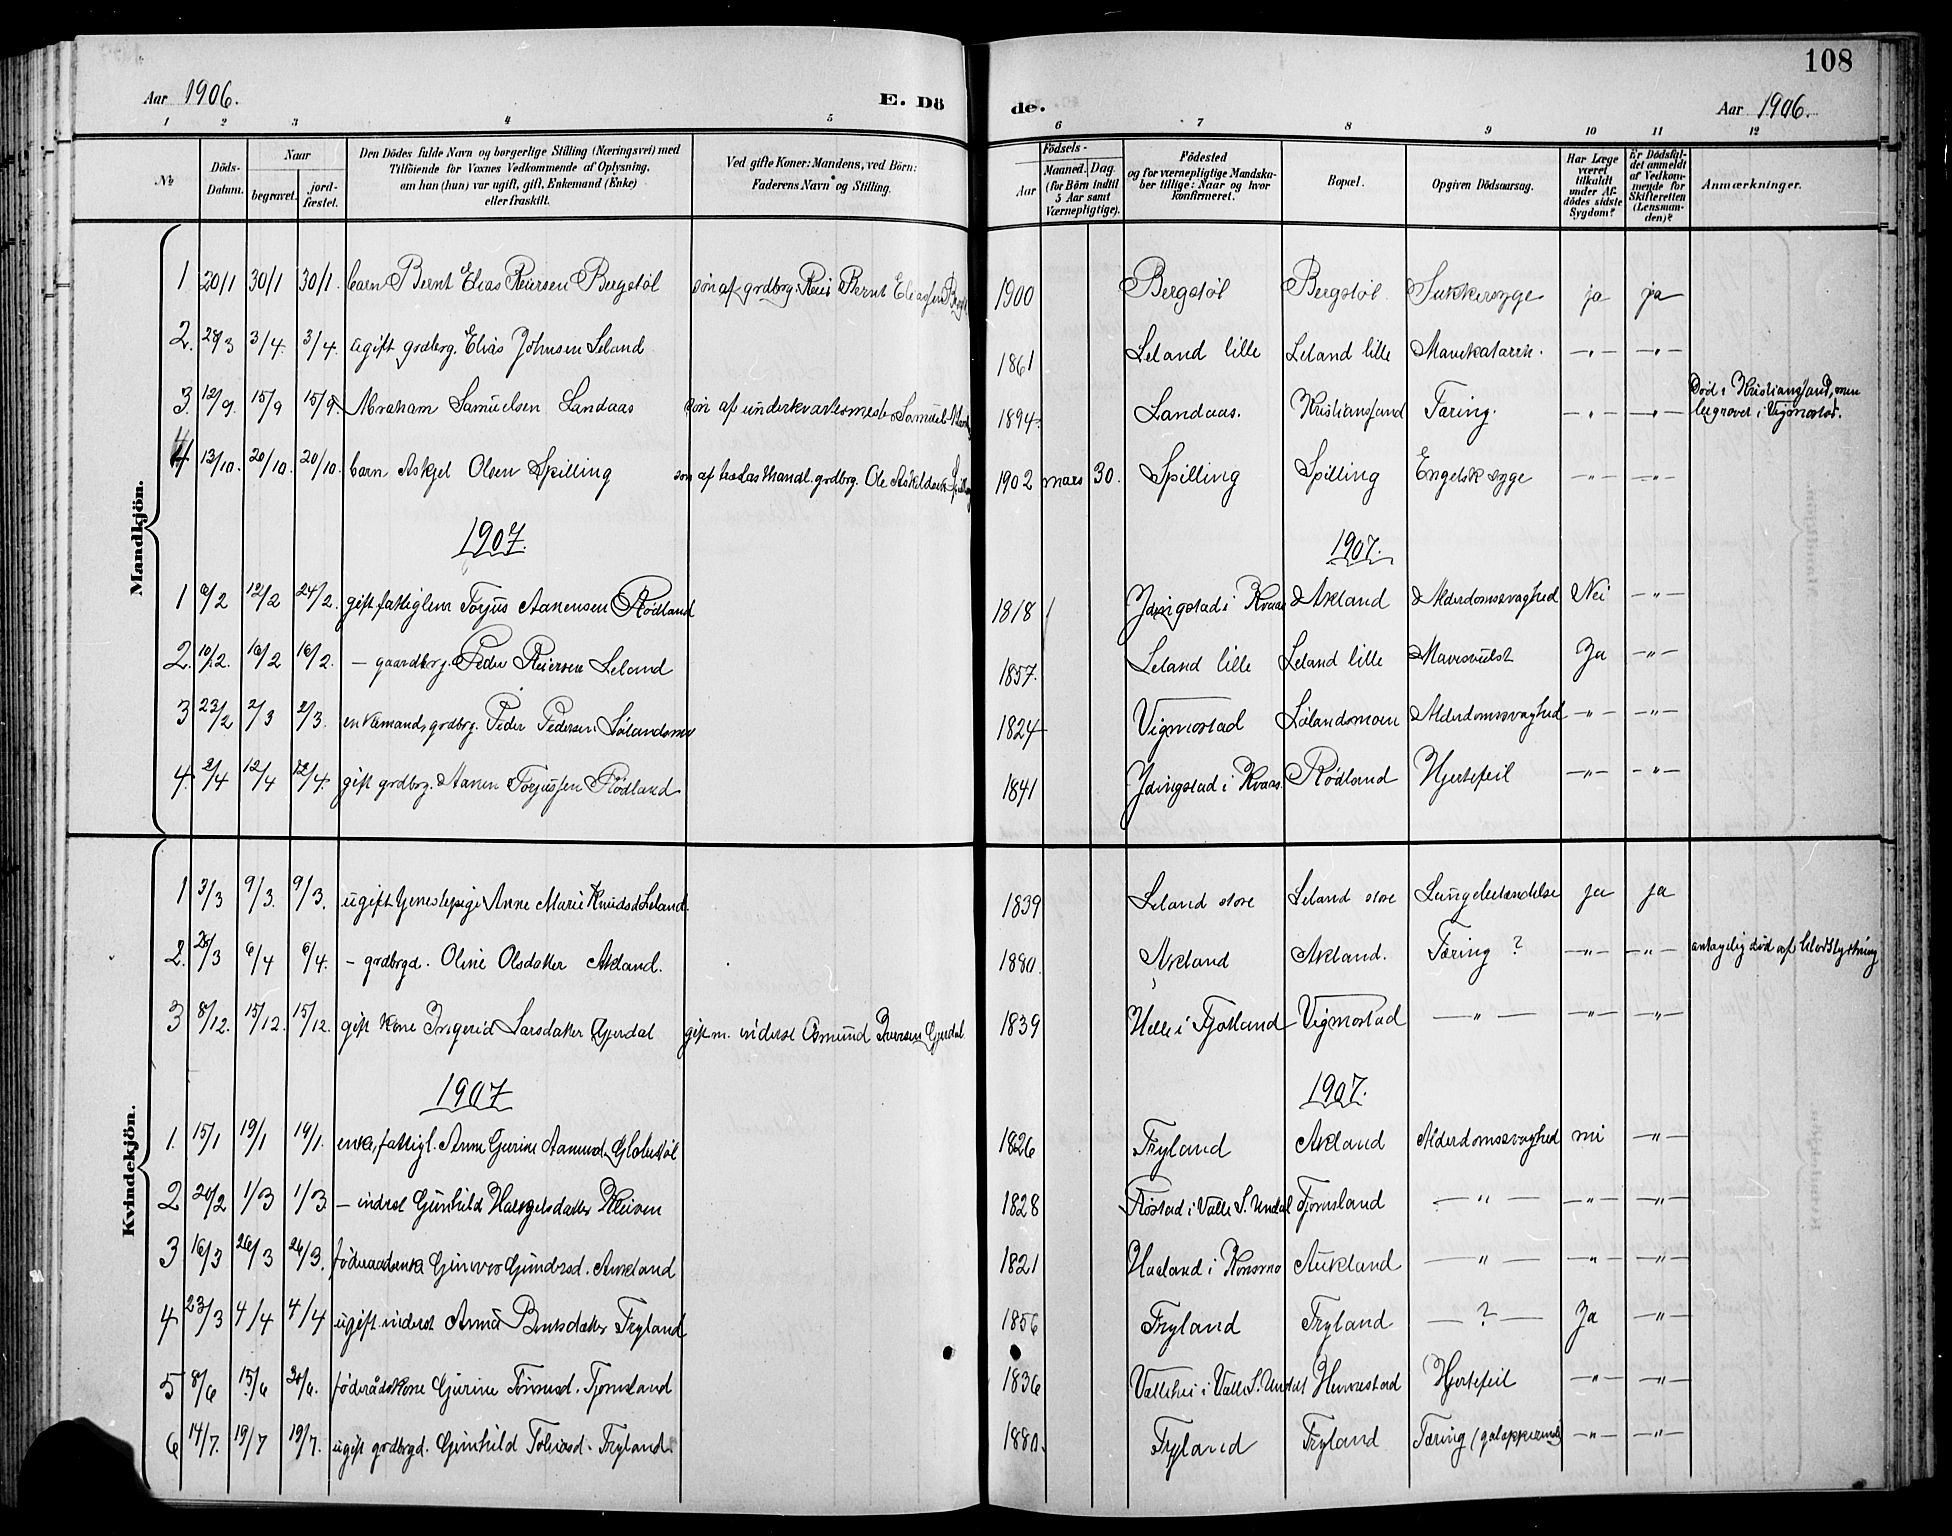 108
Aar 1906. E. Dö de. Aar 1906.
1 2 3 4 5 6 7 8 9 10 11 12
No
Döds-Datum.
Naar
begravet.
jord-fæstet.
Den Dödes fulde Navn og borgerlige Stilling (Næringsvei) med
Tilföiende for Voxnes Vedkommende af Oplysning,
om han (hun) var ugift, gift, Enkemand (Enke)
eller fraskilt.
Ved gifte Koner: Mandens, ved Börn:
Faderens Navn og Stilling.
Födsels-
Aar
Maaned. Dag.
(for Börn indtil
5 Aar samt
Værnepligtige).
Födested
og for værnepligtige Mandska-
ber tillige: Naar og hvor
konfirmeret.
Bopæl.
Opgiven Dödsaarsag.
Har Læge
været
tilkaldt
under Af-
dödes sidste
Sygdom?
Er Dödsfal-
det anmeldt
af Vedkom-
mende for
Skifteretten
(Lensman-
den)?
Anmærkninger.
Mandkjön.
1 20/1 30/1 30/1 barn Bernt Elias Reiersen Bergstøl søn af grdbrg. Reier Bernt Eliassen 1900 Bergstøl Bergstøl Sukkersyge ja ja
2. 28/3 3/4. 3/4. ugift grdbrg. Elias Johnsen Leland 1861 Leland lille Leland lille Mavekatarrh. —"— —"—
3. 12/9. 15/9 15/9. Abraham Samuelsen Landaas søn af underkvartermester Samuel 1894. Landaas. Kristianssand Tæring. —"— —"— Død i Kristianssand, men
begravet i Vigmostad.
4 13/10. 20/10. 20/10. barn Askjel Olsen Spilling søn af grdbrg. Ole Askildsen Spilling 1902 mars 30. Spilling Spilling Engelsk syge —"— —"—
1907. 1907.
1 6/2 12/2 24/2. gift fattiglem Torjus Aanensen Rødland 1818 Ydingstad i Kvaas Akland Alderdomssvaghed Nei —"—
2. 10/2. 16/2 16/2. — gaardbrg. Peder Reiersen Leland 1857. Leland lille Leland lille Mavesvulst Ja —"—
3 23/2 2/3 2/3. enkemand, grdbrg. Peder Pedersen Lølandsmo 1824 Vigmostad Lølandsmoen Alderdomssvaghed —"— —"—
4. 2/4 12/4 12/4. gift grdbrg. Aanen Torjussen Rødland 1841 Ydingstad i Kvaas. Rødland Hjertefeil —"— —"—
Kvindekjön.
1 3/3 9/3. 9/3. ugift Anne Marie Knudsd. Leland. 1839 Leland store Leland store Lungebetændelse ja ja
2. 26/3 6/4 6/4. — grdbrgd. Oline Olsdatter Akland. 1880. Akland Akland. Tæring ? —"— —"— antagelig død af blodstyrtning
3 8/12. 15/12. 15/12. gift Kone Ingerid Larsdatter Gjerdal gift m. inderst Osmund Iversen Gjerdal 1839 Helle i Fjotland Vigmostad —"— —"— —"—
1907 1907.
1. 15/1 19/1 19/1. enke, fattigl. Anne Gurine Aamunds. Glabestøl 1826 Fryland Akland Alderdomssvaghed nei —"—
2 20/2 1/3 1/3 — inderst Gunhild Halvgelsdatter Kleiven 1828 Røstad i Valle S. Undal Tjomsland —"— —"— —"—
3 16/3 26/3 26/3. føderaadsenke Ginvor Gundersd. Aukland 1821 Haaland i Konsmo Aukland —"— —"— —"—
4 23/3 4/4 4/4 ugift inderst Anna Berntsdatter Fryland 1856 Fryland Fryland —?— Ja —"—
5 8/6 15/6 20/6. føderådskone Gurine Tønnesd. Tjomsland 1836 Vallehei i Valle S. Undal Hunnestad Hjertefeil —"— —"—
6 14/7. 19/7 19/7. ugift grdbrgd. Gunhild Tobiasd. Fryland. 1880. Fryland Fryland Tæring (galopperende) —"— —"—